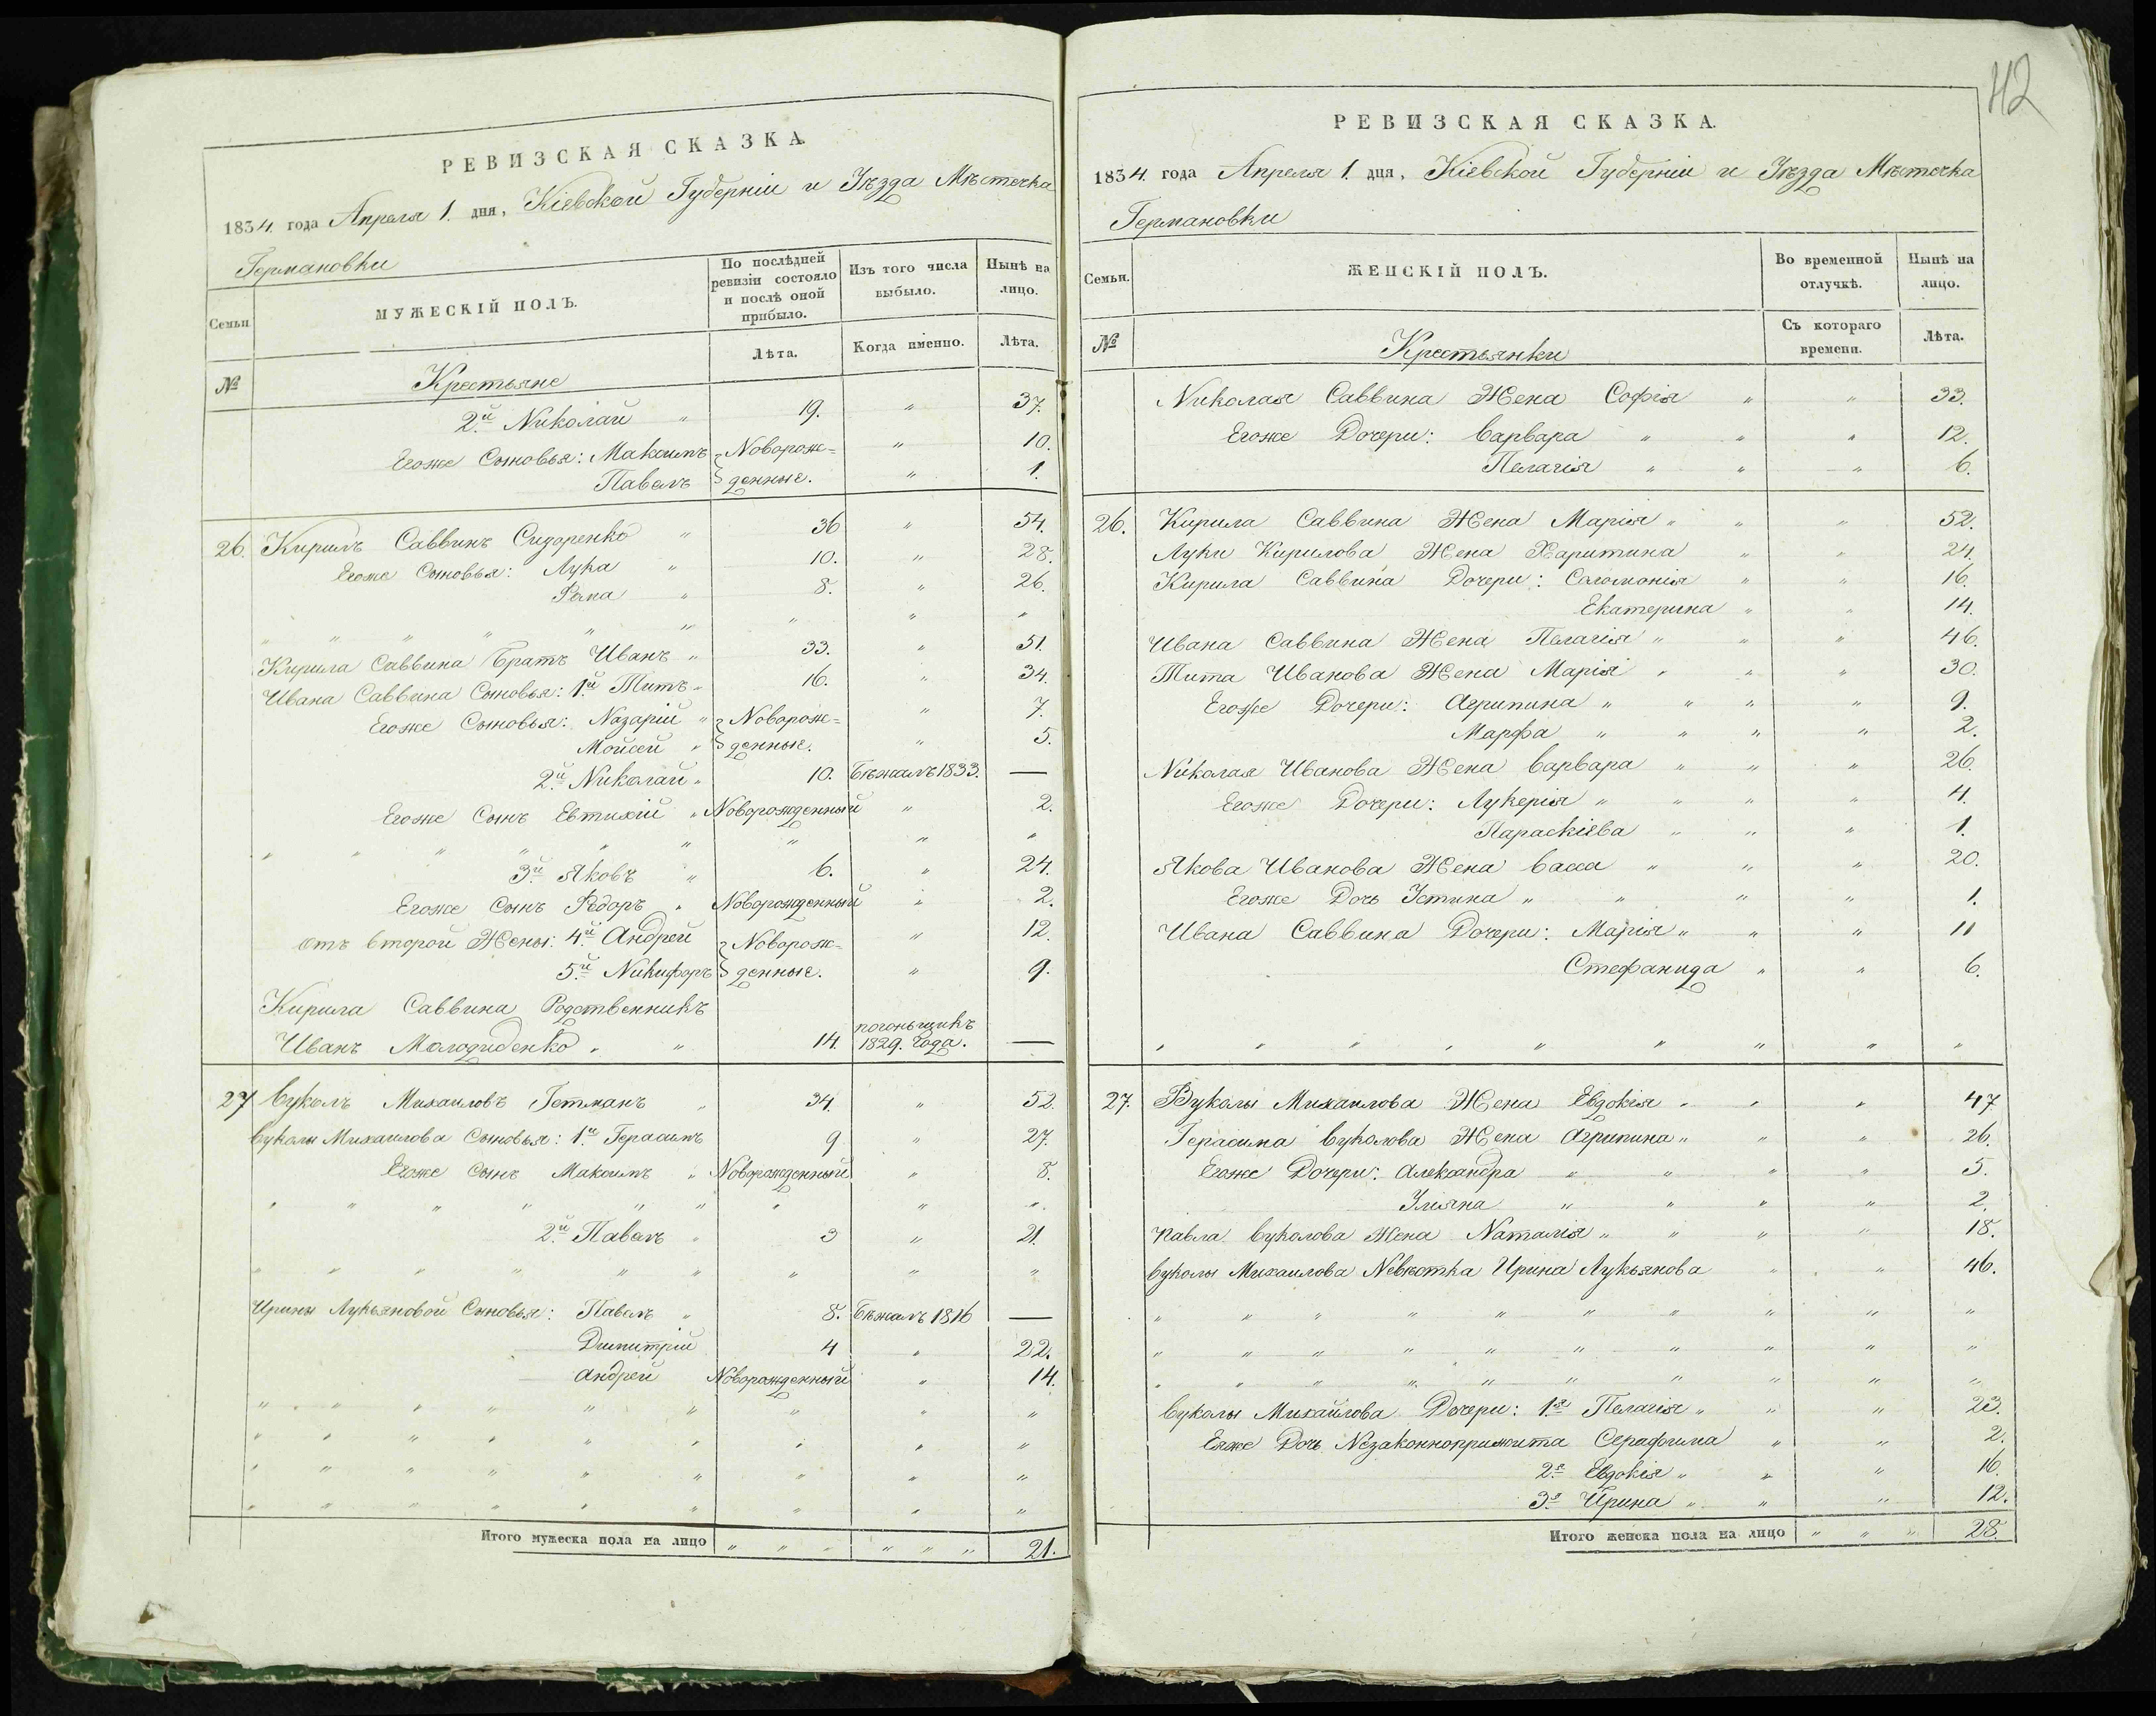 РЕВИЗСКАЯ СКАЗКА.
1834. года Апреля 1. дня, Кіевской Губерніи и Уѣзда Мѣстечка
Германовки
Семьи
МУЖЕСКІЙ ПОЛЪ.
По послѣдней ревизіи состояло и послѣ оной прибыло.
Изъ того числа выбыло.
Нынѣ на лицо.
№
Лѣта.
Когда именно.
Лѣта.
Крестьяне
2й Николай " 19. " 37.
Егоже Сыновья: Максимъ Новорож= " 10.
Павелъ денные. " 1.
26. Кирилъ Саввинъ Сидоренко " 36 " 54.
Егоже Сыновья: Лука " 10. " 28.
Рома " 8. " 26.
" " " " " " " " "
Кирила Саввина Братъ Иванъ " 33. " 51.
Ивана Саввина Сыновья: 1й Титъ " 16. " 34.
Егоже Сыновья: Назарій " Новорож= " 7.
Мойсей " денные. " 5.
2й Николай " 10. Бѣжалъ 1833. —
Егоже Сынъ Евтихій " Новорожденный " 2.
" " " " " " " " "
3й Яковъ " 6. " 24.
Егоже Сынъ Федоръ " Новорожденный " 2.
отъ второй Жены: 4й Андрей Новорож= " 12.
5й Никифоръ денные. " 9.
Кирила Саввина Родственникъ
Иванъ Молодиденко " " 14. погоньщикъ 1829. года. —
27 Вуколъ Михаиловъ Гетманъ " 34. " 52.
Вуколы Михаилова Сыновья: 1й Герасимъ 9 " 27.
Егоже Сынъ Максимъ " Новорожденный " 8.
" " " " " " " " "
2й Павелъ " 3 " 21.
" " " " " " " " "
Ирины Лукьяновой Сыновья: Павелъ " 8. Бѣжалъ 1816 —
Димитрій 4 " 22.
Андрей Новорожденный " 14.
" " " " " " " " "
" " " " " " " " "
" " " " " " " " "
" " " " " " " " "
Итого мужеска пола на лицо " " " " " " 21.
42
РЕВИЗСКАЯ СКАЗКА.
1834. года Апреля 1. дня, Кіевской Губерніи и Уѣзда Мѣстечка
Германовки
Семьи.
ЖЕНСКІЙ ПОЛЪ.
Во временной отлучкѣ.
Нынѣ на лицо.
№
Съ котораго времени.
Лѣта.
Крестьянки
Николая Саввина Жена Софія " " 33.
Егоже Дочери: Варвара " " " 12.
Пелагія " " " 6.
26. Кирила Саввина Жена Марія " " " 52.
Луки Кирилова Жена Харитина " " 24.
Кирила Саввина Дочери: Соломонія " " 16.
Екатерина " " 14.
Ивана Саввина Жена Пелагія " " " 46.
Тита Иванова Жена Марія " " " 30.
Егоже Дочери: Агрипина " " " " 9.
Марфа " " " " 2.
Николая Иванова Жена Варвара " " " 26.
Егоже Дочери: Лукерія " " " " 4.
Параскіева " " " 1.
Якова Иванова Жена Васса " " " 20.
Егоже Дочь Устина " " " " 1.
Ивана Саввина Дочери: Марія " " " 11
Стефанида " " 6.
" " " " " " " " "
27. Вуколы Михаилова Жена Евдокія " " " 47
Герасима Вуколова Жена Агрипина " " " 26.
Егоже Дочери: Александра " " " " 5.
Уліяна " " " " 2.
Павла Вуколова Жена Наталія " " " " 18.
Вуколы Михаилова Невѣстка Ирина Лукьянова " " 46.
" " " " " " " " " "
" " " " " " " " " "
" " " " " " " " " "
Вуколы Михайлова Дочери: 1я Пелагія " " " 23.
Еяже Дочь Незаконноприжита Серафима " " 2.
2я Евдокія " " " 16.
3я Ирина " " " 12.
Итого женска пола на лицо " " " 28.